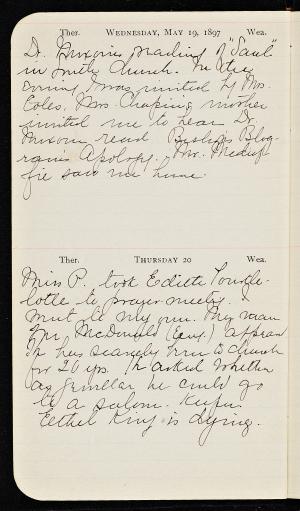 Ther. WEDNESDAY, MAY 19, 1897 Wea.
Dr. reading of "Saul"
in Unity Church. In the
evening I was invited by Mrs.
Coles. Mrs. Chapin's mother
invited me to hear Dr.
read Bishop Blog-
ram's Apology. Mr.
saw me home.
Ther. THURSDAY 20 Wea.
Miss P. took Edith Tourtel-
lotte to prayer-meeting. I
went to my own. They mean
Mr. McDonald (Cong.)
he has scarcely been to church
for 20 yrs. He asked whether
as familiar he could go
to a saloon. Keeper
Eethel King is dying.